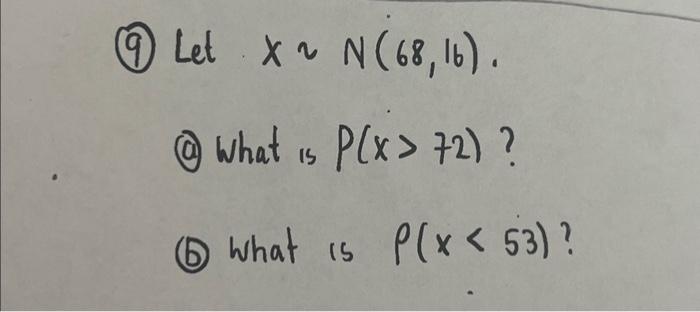 ⑨ Let X ~ N(68, 16).
ⓐ What is P(X > 72)?
ⓑ What is P(X < 53)?